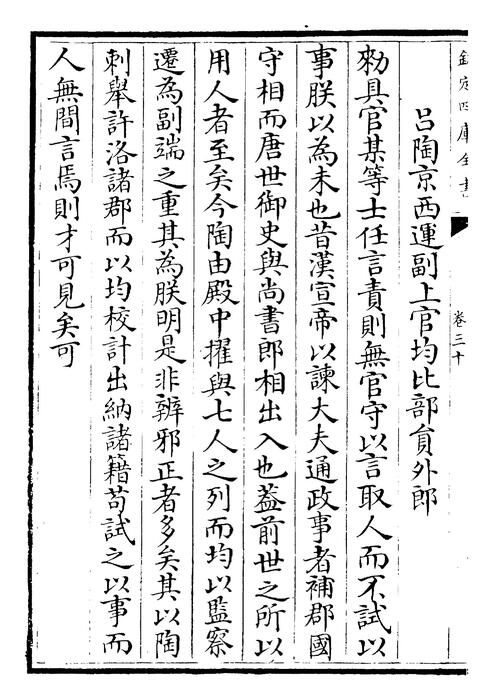 欽定四庫全書
卷三十
呂陶京西運副上官均比部貟外郎
勑具官某等士任言責則無官守以言取人而不試以
事朕以為未也昔漢宣帝以諫大夫通政事者補郡國
守相而唐世御史與尚書郎相出入也葢前世之所以
用人者至矣今陶由殿中擢與七人之列而均以監察
遷為副端之重其為朕明是非辨邪正者多矣其以陶
刺舉許洛諸郡而以均校計出納諸籍苟試之以事而
人無間言焉則才可見矣可